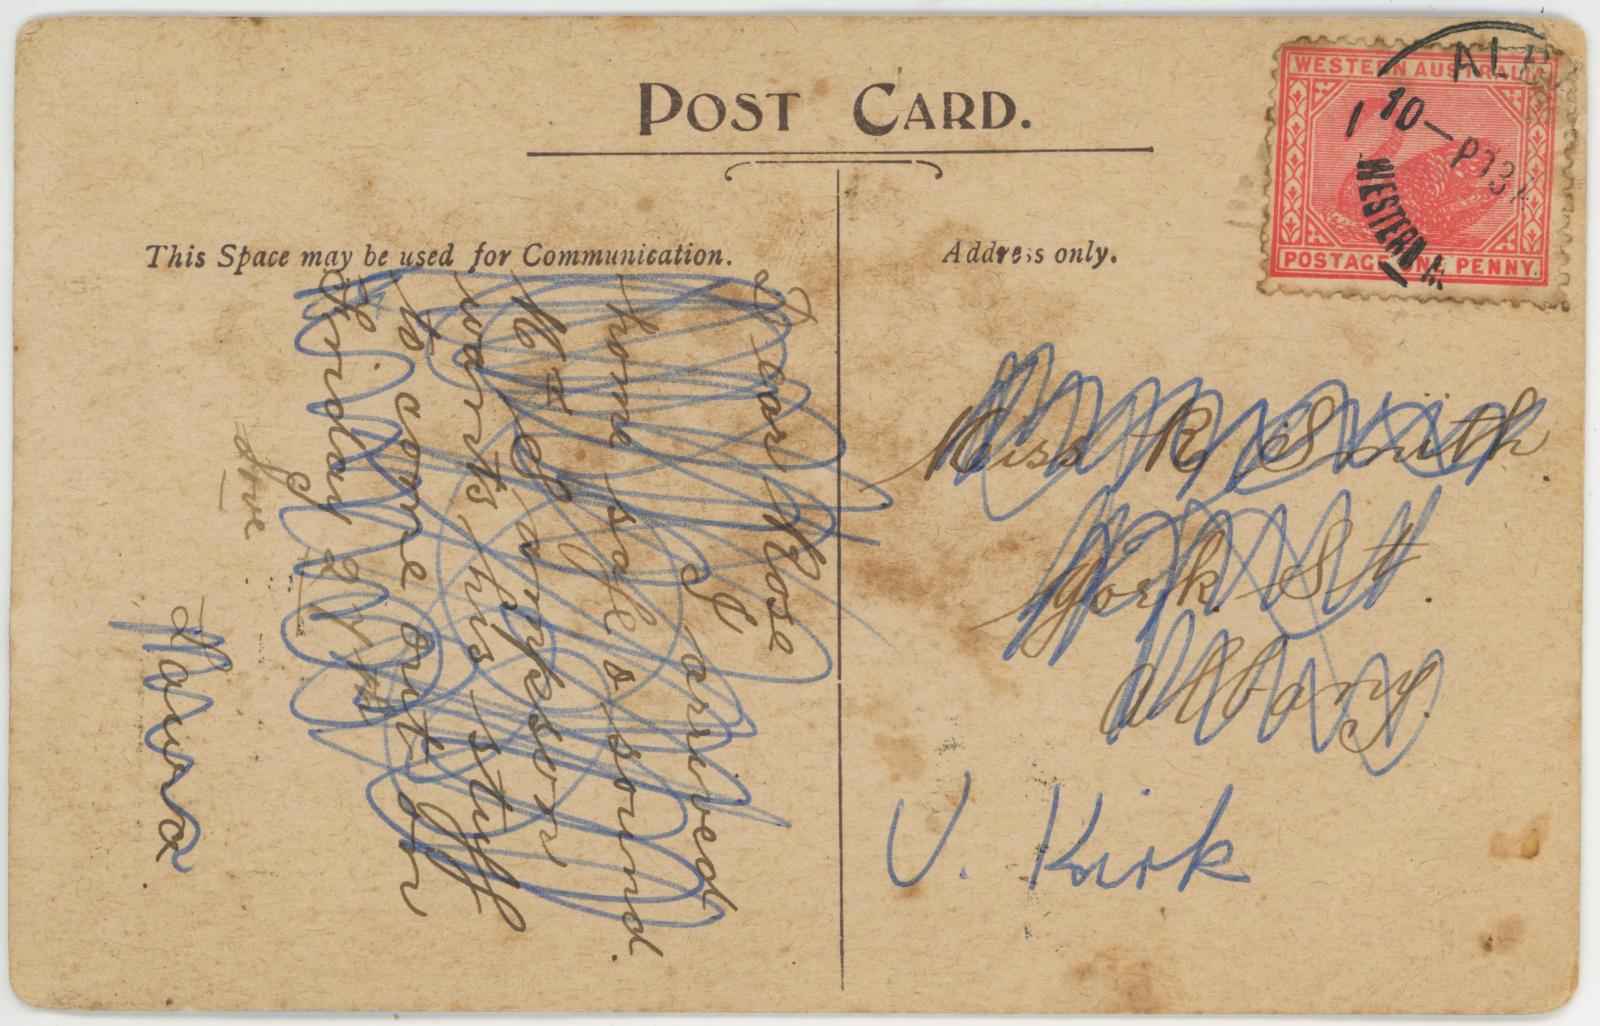 POST CARD.
This Space may be used for Communication.
Address only.
WESTERN AUSTRALIA
POSTAGE ONE PENNY.
ALB
10—
WESTERN A
Dear Rose
I arrived
home safe & sound.
Mr
wants his stuff
to come out on
Friday
love
Miss R Smith.
York St.
Albany.
V. Kirk